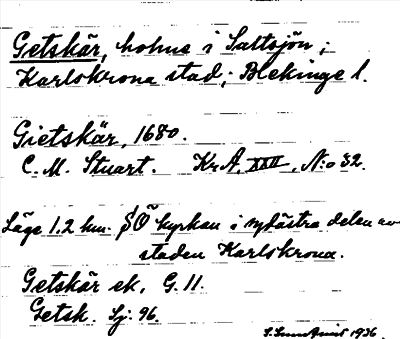 Getskär, holme i Saltsjön;
Karlskrona stad; Blekinge l.
Gietskär, 1680.
C. M. Stuart. Kr. A. XXII, N:o 32.
Läge 1.2 km. SÖ kyrkan i sydöstra delen av
staden Karlskrona.
Getskär ek. G. 11.
Getsk. Sj. 96.
1936.